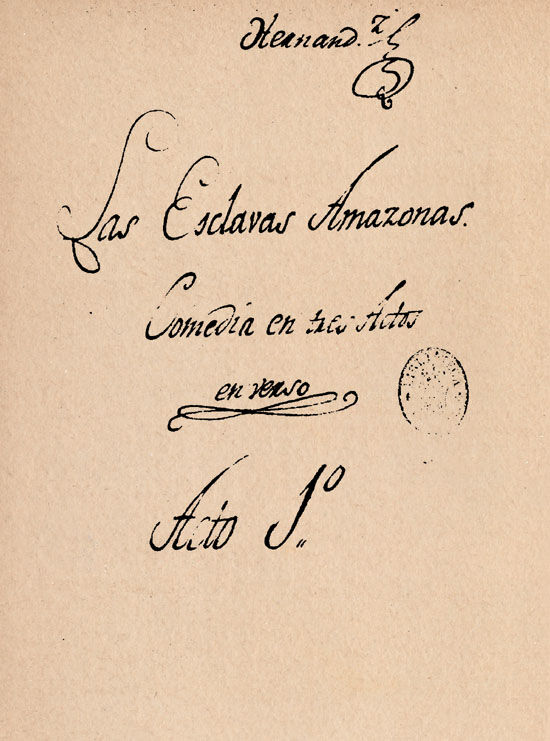 Hernand.z
Las Esclavas Amazonas.
Comedia en tres Actos
en verso
Acto 1º